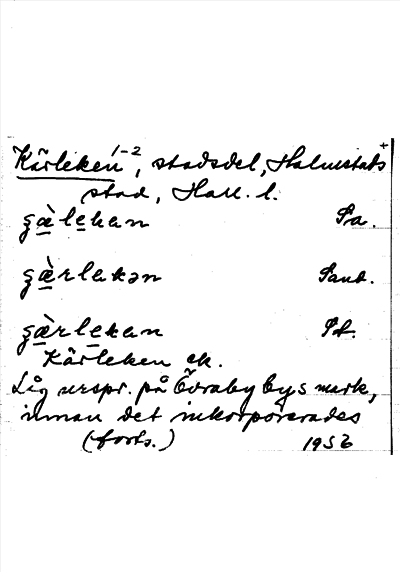 Kärleken 1-2, stadsdel, Halmstads +
stad, Hall. l.
gàlekan Sa.
gærlakən Sant.
gærlekan St.
Kärleken ek.
Låg urspr. på Övraby bys mark,
innan det inkorporerades
(forts.) 1956